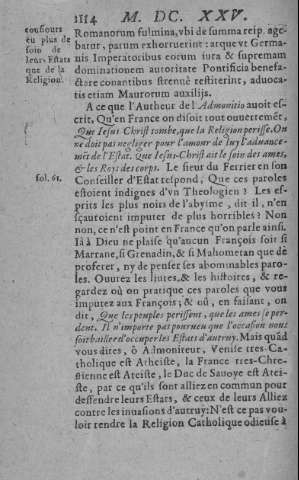 1114 M. DC. XXV.
confiours
eu plus de
soin de
leurs Estats
que de la
Religion.
Romanorum fulmina, vbi de summa reip. age-
batur, parum exhorruerint : atque vt Germa-
nis Imperatoribus eorum iura & supremam
dominationem autoritate Pontificia benefa-
ctare conantibus strenuè restiterint, aduoca-
tis etiam Maurorum auxilijs.
A ce que l'Autheur de l'Admonitio auoit es-
crit, Qu'en France on disoit tout ouuertemēt,
Que Iesus Christ tombe, que la Religion perisse. On
ne doit pas negliger pour l'amour de luy l'aduance-
mēt de l'Estat. Que Iesus-Christ ait le soin des ames,
& les Roys des corps. Le sieur du Ferrier en son
fol. 61.
Conseiller d'Estat respond, Que ces paroles
estoient indignes d'vn Theologien ? Les es-
prits les plus noirs de l'abyme, dit il, n'en
sçauroient imputer de plus horribles ? Non
non, ce n'est point en France qu'on parle ainsi.
Ià à Dieu ne plaise qu'aucun François soit si
Marrane, si Grenadin, & si Mahometan que de
proferer, ny de penser ses abominables paro-
les. Ouurez les liures, & les histoires, & re-
gardez où on pratique ces paroles que vous
imputez aux François ; & où, en faisant, on
dit, Que les peuples perissent, que les ames se per-
dent. Il n'importe pas pourueu que l'occasion nous
soit baillee d'occuper les Estats d'autruy. Mais quād
vous dites, ô Admoniteur, Venise tres-Ca-
tholique est Atheiste, la France tres-Chre-
stienne est Ateiste, le Duc de Sauoye est Atei-
ste, par ce qu'ils sont alliez en commun pour
deffendre leurs Estats, & ceux de leurs Alliez
contre les inuasions d'autruy: N'est ce pas vou-
loir rendre la Religion Catholique odieuse à